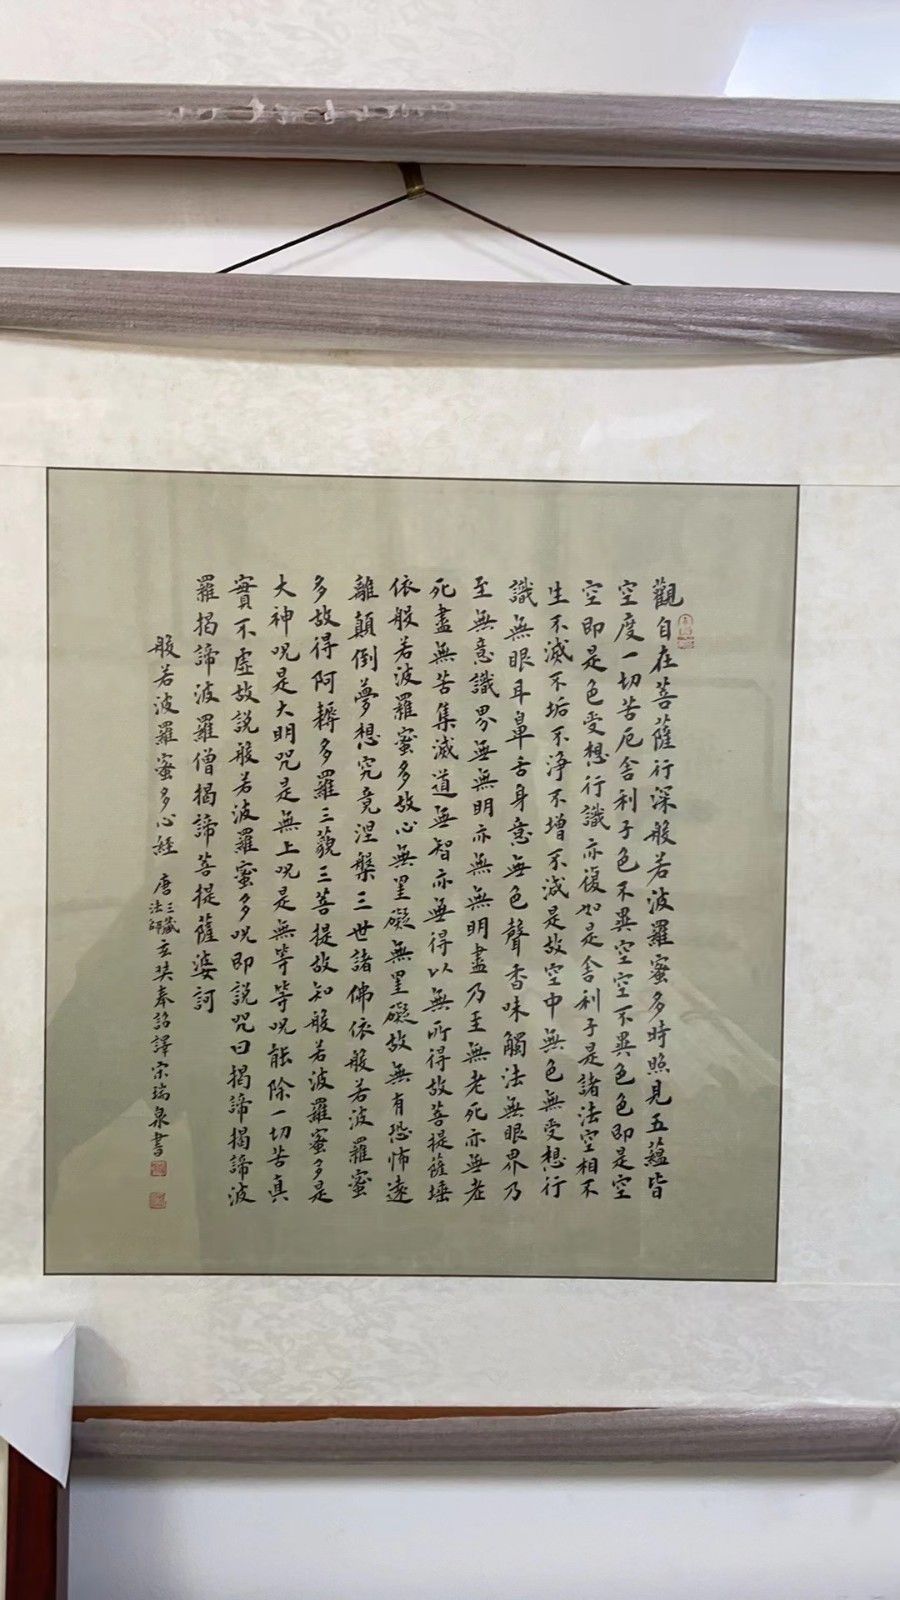 觀自在菩薩行深般若波羅蜜多時照見五蘊皆
空度一切苦厄舍利子色不異空空不異色色即是空
空即是色受想行識亦復如是舍利子是諸法空相不
生不滅不垢不淨不增不減是故空中無色無受想行
識無眼耳鼻舌身意無色聲香味觸法無眼界乃
至無意識界無無明亦無無明盡乃至無老死亦無老
死盡無苦集滅道無智亦無得以無所得故菩提薩埵
依般若波羅蜜多故心無罣礙無罣礙故無有恐怖遠
離顛倒夢想究竟涅槃三世諸佛依般若波羅蜜
多故得阿耨多羅三藐三菩提故知般若波羅蜜多是
大神呪是大明咒是無上呪是無等等呪能除一切苦真
實不虛故說般若波羅蜜多呪即說咒曰揭諦揭諦波
羅揭諦波羅僧揭諦菩提薩婆訶
般若波羅蜜多心經 唐三藏法師玄奘奉詔譯宋瑞泉書